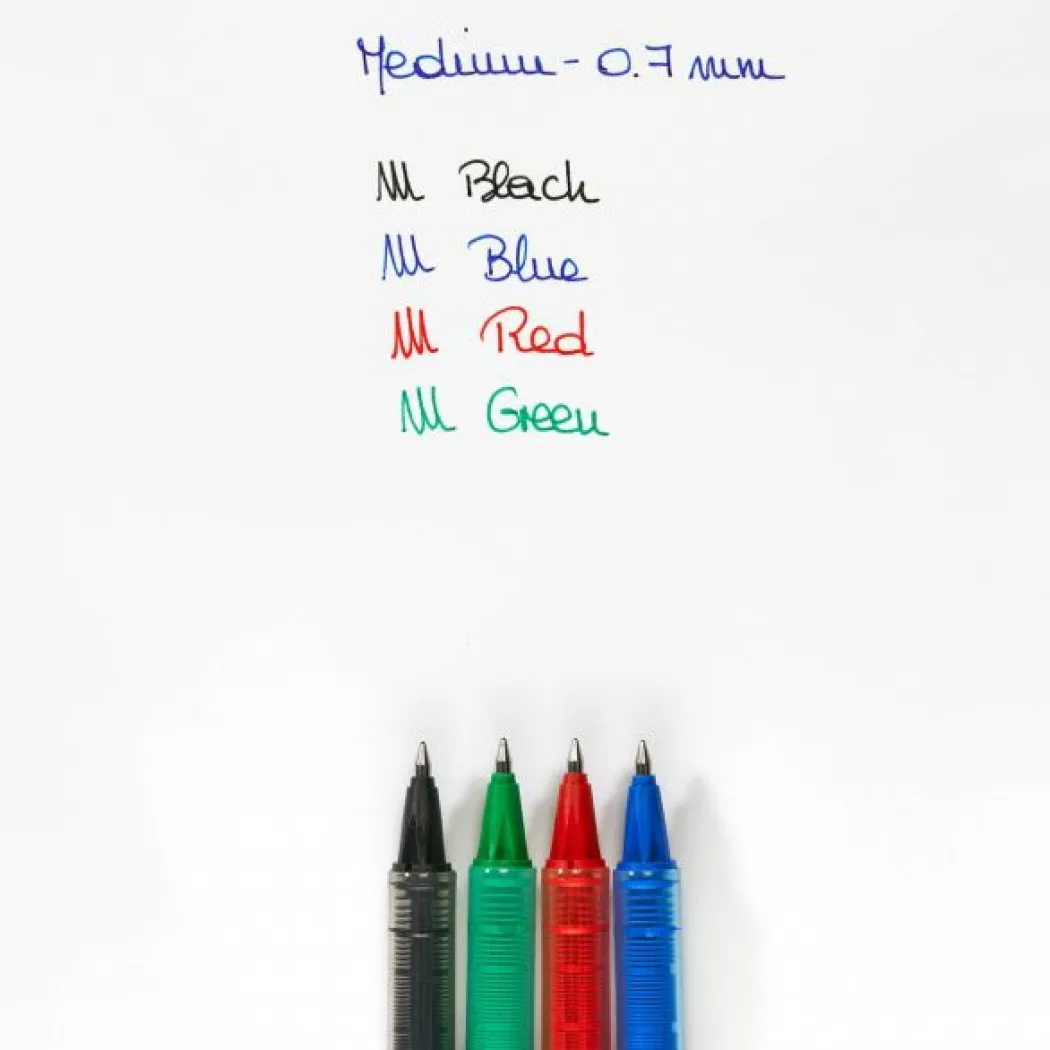 Medium - 0.7 mm
Black
Blue
Red
Green